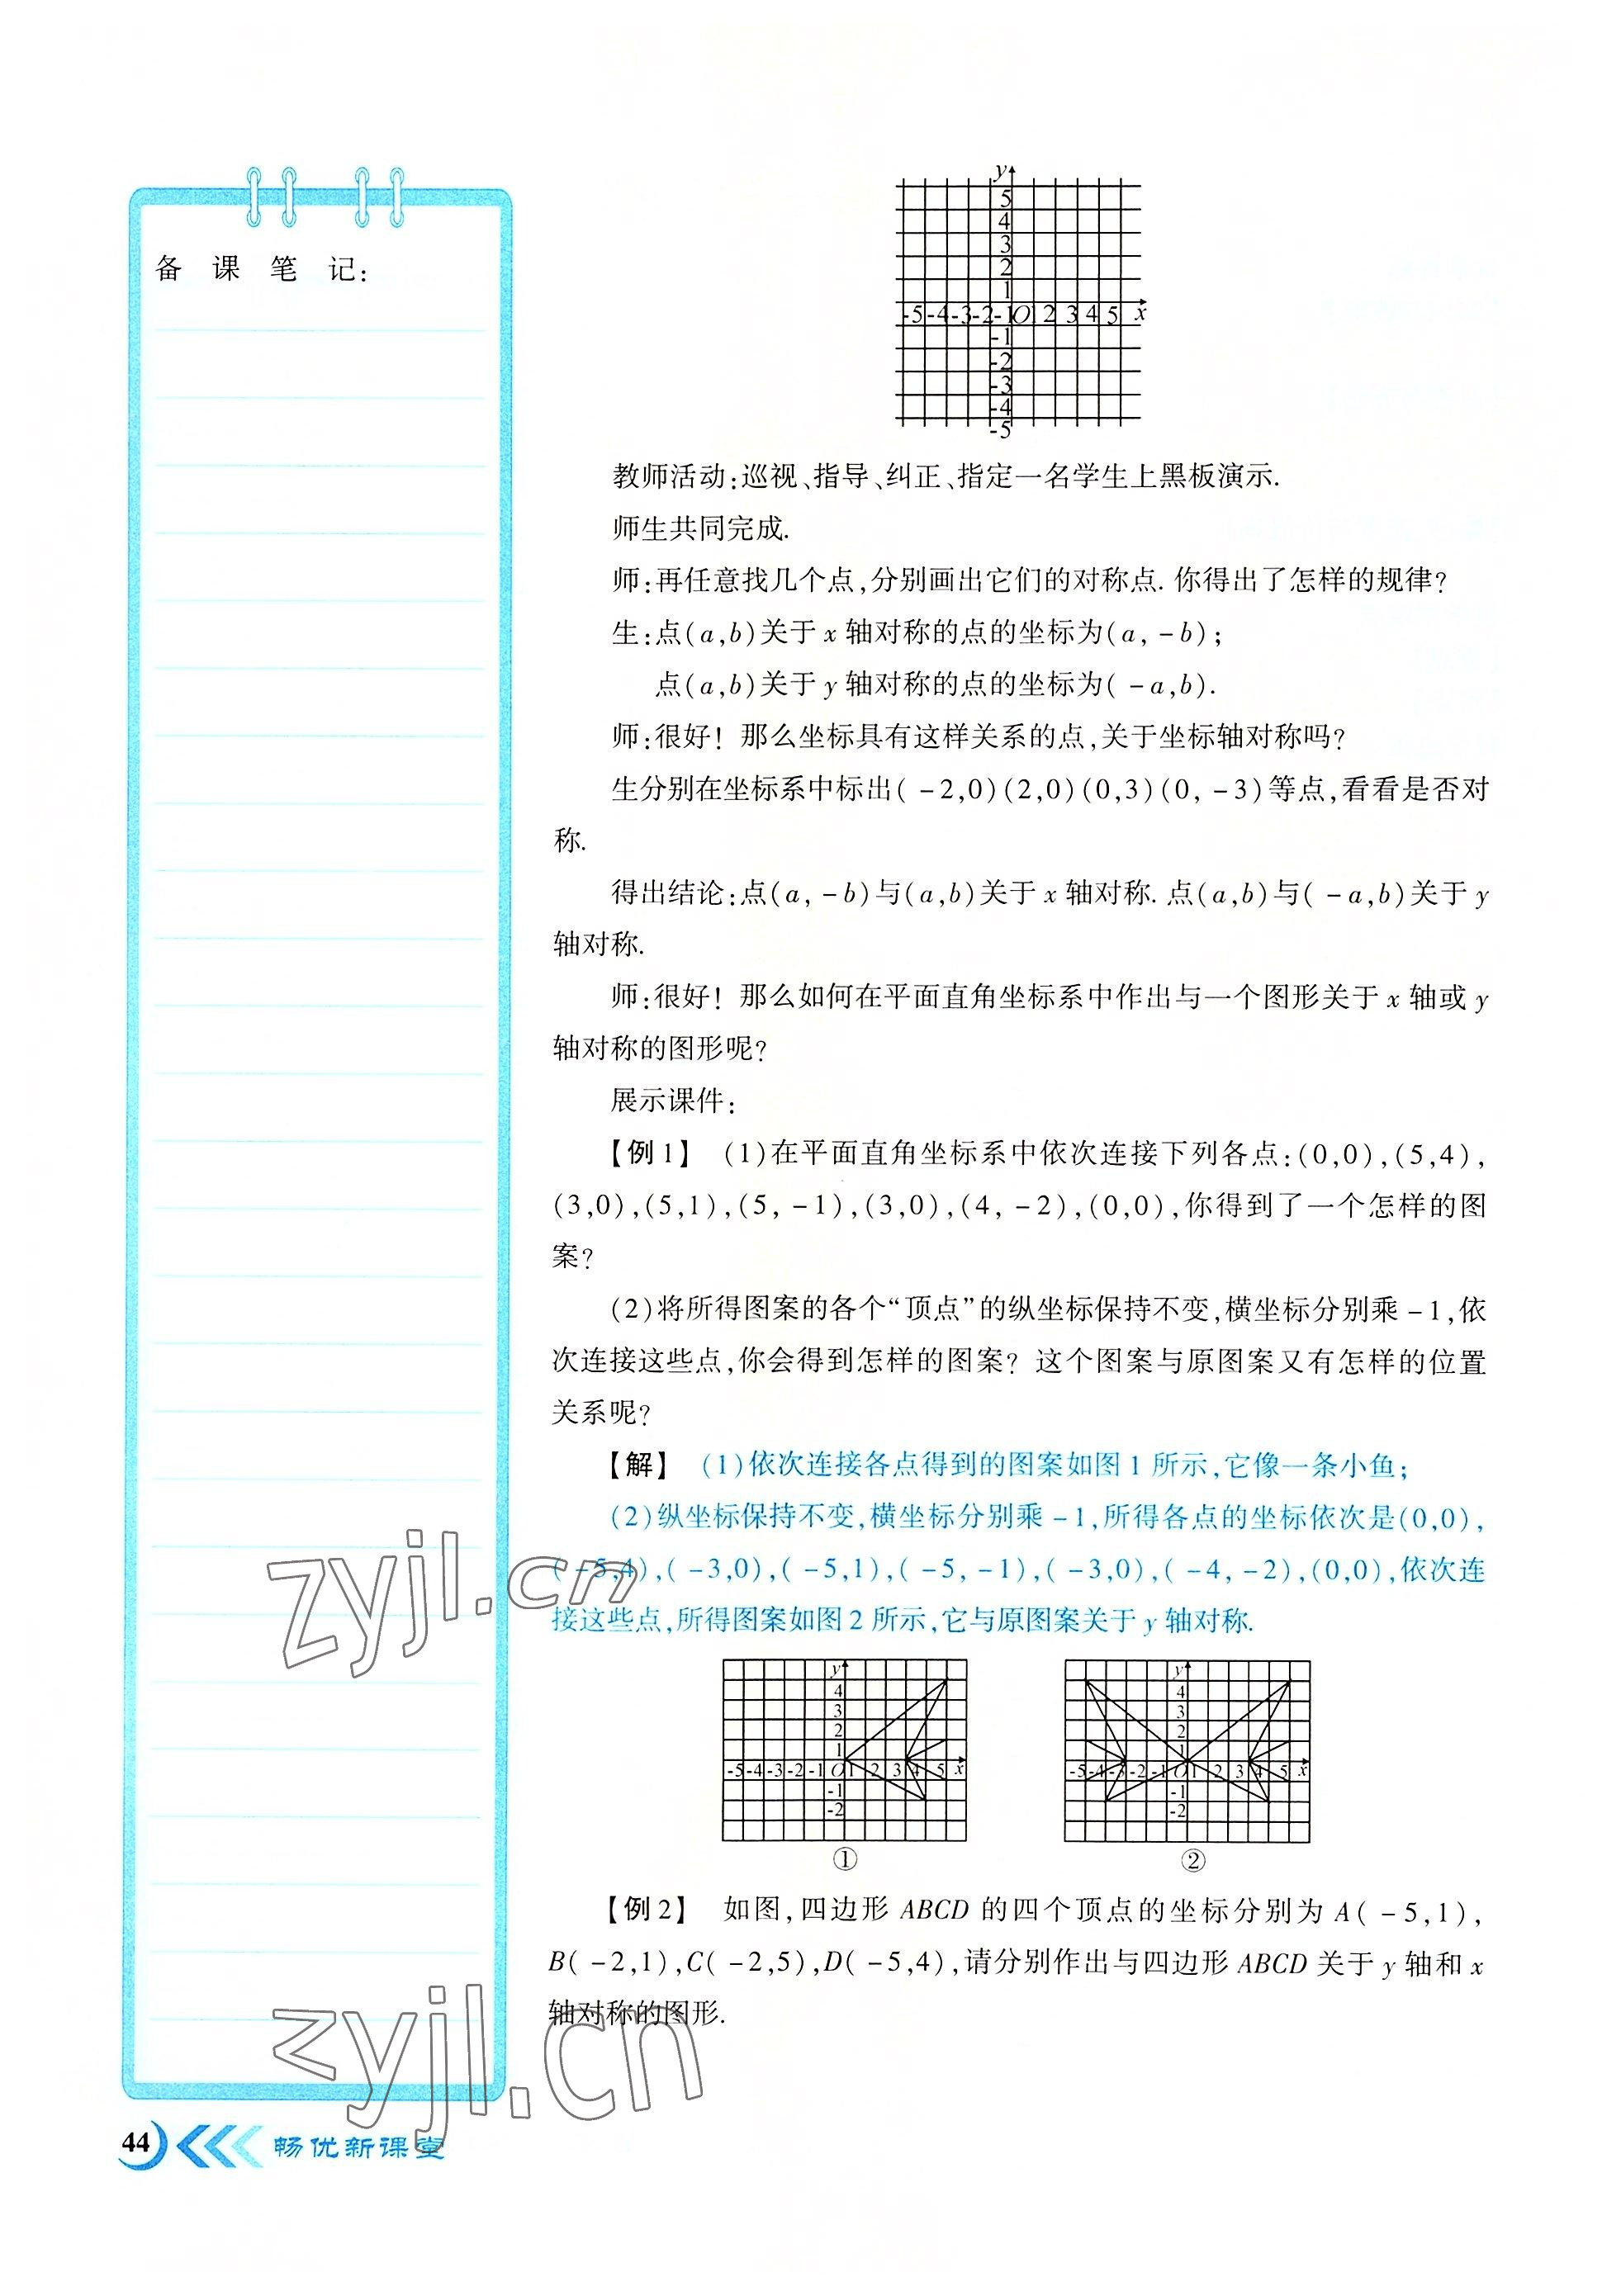 备 课 笔 记:
y
5
4
3
2
1
-5 -4 -3 -2 -1 O 1 2 3 4 5 x
-1
-2
-3
-4
-5
教师活动:巡视、指导、纠正、指定一名学生上黑板演示.
师生共同完成.
师:再任意找几个点,分别画出它们的对称点. 你得出了怎样的规律?
生:点(a,b)关于 x 轴对称的点的坐标为(a, -b);
点(a,b)关于 y 轴对称的点的坐标为( -a,b).
师:很好! 那么坐标具有这样关系的点,关于坐标轴对称吗?
生分别在坐标系中标出( -2,0)(2,0)(0,3)(0, -3)等点,看看是否对
称.
得出结论:点(a, -b)与(a,b)关于 x 轴对称. 点(a,b)与( -a,b)关于 y
轴对称.
师:很好! 那么如何在平面直角坐标系中作出与一个图形关于 x 轴或 y
轴对称的图形呢?
展示课件:
【例1】 (1)在平面直角坐标系中依次连接下列各点:(0,0),(5,4),
(3,0),(5,1),(5, -1),(3,0),(4, -2),(0,0),你得到了一个怎样的图
案?
(2)将所得图案的各个“顶点”的纵坐标保持不变,横坐标分别乘 -1,依
次连接这些点,你会得到怎样的图案? 这个图案与原图案又有怎样的位置
关系呢?
【解】 (1)依次连接各点得到的图案如图 1 所示,它像一条小鱼;
(2)纵坐标保持不变,横坐标分别乘 -1,所得各点的坐标依次是(0,0),
( -5,4),( -3,0),( -5,1),( -5, -1),( -3,0),( -4, -2),(0,0),依次连
接这些点,所得图案如图 2 所示,它与原图案关于 y 轴对称.
y
4
3
2
1
-5 -4 -3 -2 -1 O 1 2 3 4 5 x
-1
-2
①
y
4
3
2
1
-5 -4 -3 -2 -1 O 1 2 3 4 5 x
-1
-2
②
【例2】 如图,四边形 ABCD 的四个顶点的坐标分别为 A( -5,1),
B( -2,1),C( -2,5),D( -5,4),请分别作出与四边形 ABCD 关于 y 轴和 x
轴对称的图形.
zyjl.cn
zyjl.cn
44 畅优新课堂